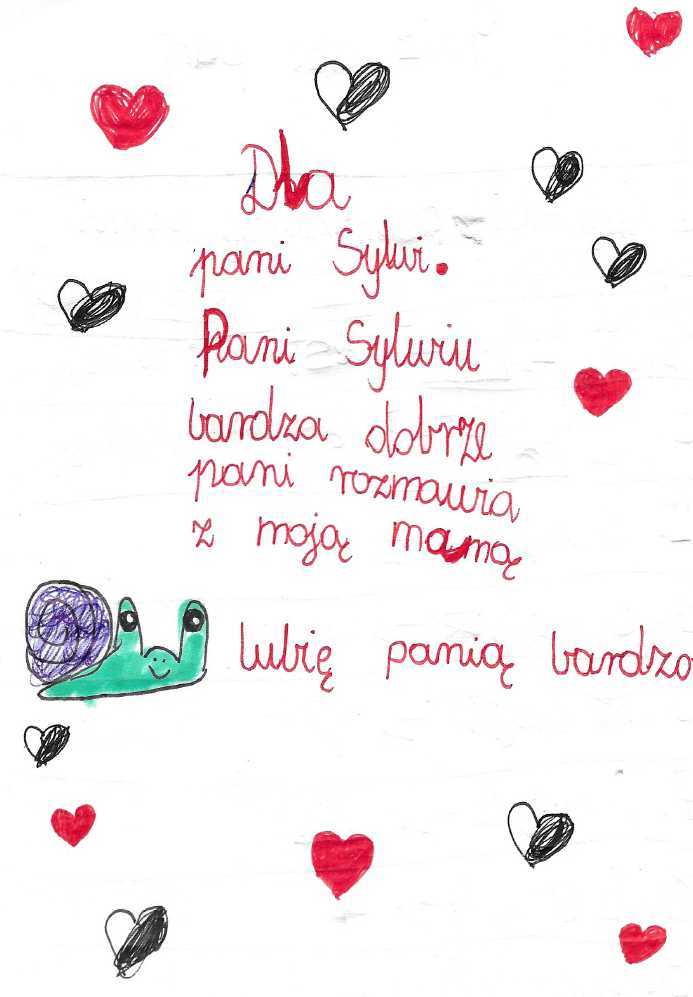 Dla
pani Sylwi.
Pani Sylwiu
bardza dobrze
pani rozmawia
z moją mamą
lubię panią bardzo